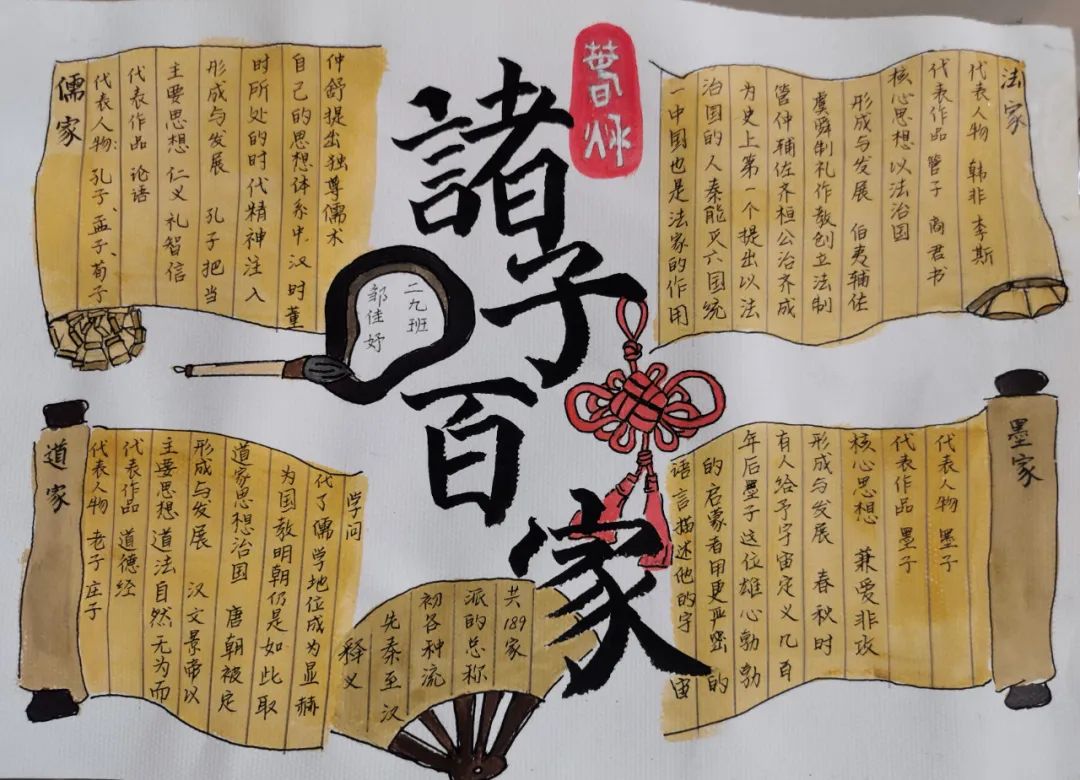 春秋
諸子百家
二九班
邹佳妤
儒家
代表人物: 孔子、孟子、荀子
代表作品 论语
主要思想 仁义礼智信
形成与发展 孔子把当
时所处的时代精神注入
自己的思想体系中,汉时董
仲舒提出独尊儒术
法家
代表人物 韩非 李斯
代表作品 管子 商君书
核心思想 以法治国
形成与发展 伯夷辅佐
虞舜制礼作教创立法制
管仲辅佐齐桓公治齐成
为史上第一个提出以法
治国的人秦能灭六国统
一中国也是法家的作用
道家
代表人物 老子 庄子
代表作品 道德经
主要思想 道法自然无为而
形成与发展 汉文景帝以
道家思想治国 唐朝被定
为国教明朝仍是如此取
代了儒学地位成为显赫
学问
墨家
代表人物 墨子
代表作品 墨子
核心思想 兼爱非攻
形成与发展 春秋时
有人给予宇宙定义几百
年后墨子这位雄心勃勃
的启蒙者用更严密的
语言描述他的宇宙
释义
先秦至汉
初各种流
派的总称
共189家